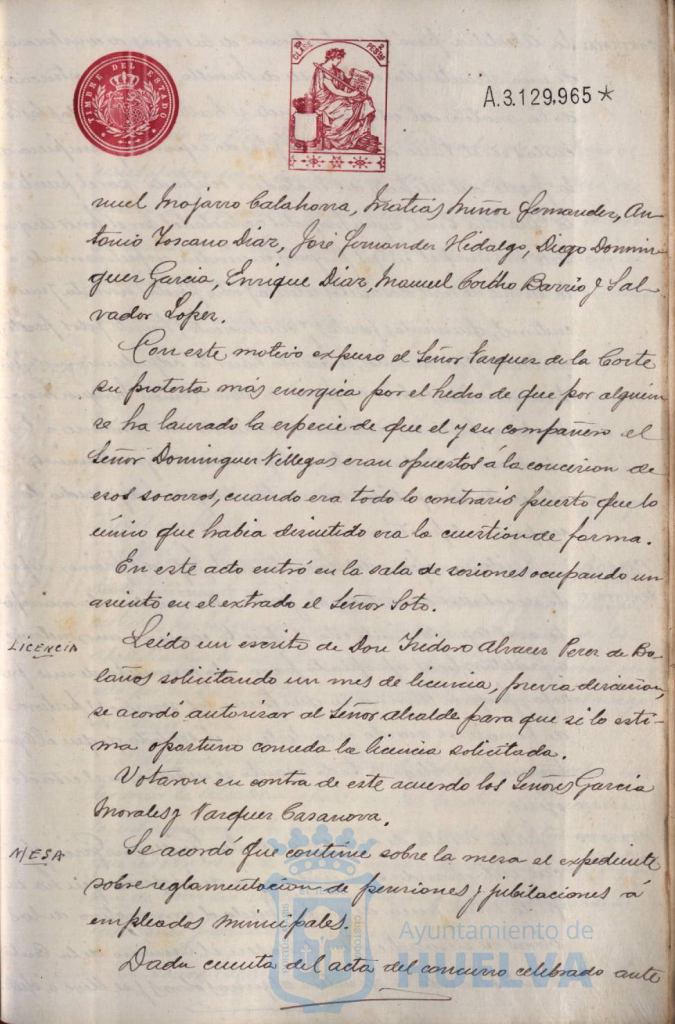 TIMBRE DEL ESTADO
CLASE
PESTAS
A.3.129,965*
nuel Mojarro Calahorra, Matias Muñoz Fernandez, An-
tonio Toscano Diaz, José Fernandez Hidalgo, Diego Domin-
guez Garcia, Enrique Diaz, Manuel Barrio y Sal-
vador Lopez.
Con este motivo expuso el Señor Vazquez de la Corte
su protesta más energica por el hecho de que por alguien
se ha lanzado la especie de que el y su compañero el
Señor Dominguez Villegas eran opuestos á la concesion de
esos socorros, cuando era todo lo contrario puesto que lo
único que habia discutido era la cuestion de forma.
En este acto entró en la sala de sesiones ocupando un
asiento en el extrado el Señor Soto.
LICENCIA
Leido un escrito de Don Isidoro Alvarez Perez de Bo-
laños solicitando un mes de licencia, previa discusion,
se acordó autorizar al Señor Alcalde para que si lo esti-
ma oportuno conceda la licencia solicitada.
Votaron en contra de este acuerdo los Señores Garcia
Morales y Vazquez Casanova.
MESA
Se acordó que continue sobre la mesa el expediente
sobre reglamentacion de pensiones y jubilaciones á
empleados municipales.
Dada cuenta del acta del concurso celebrado ante
Ayuntamiento de
HUELVA